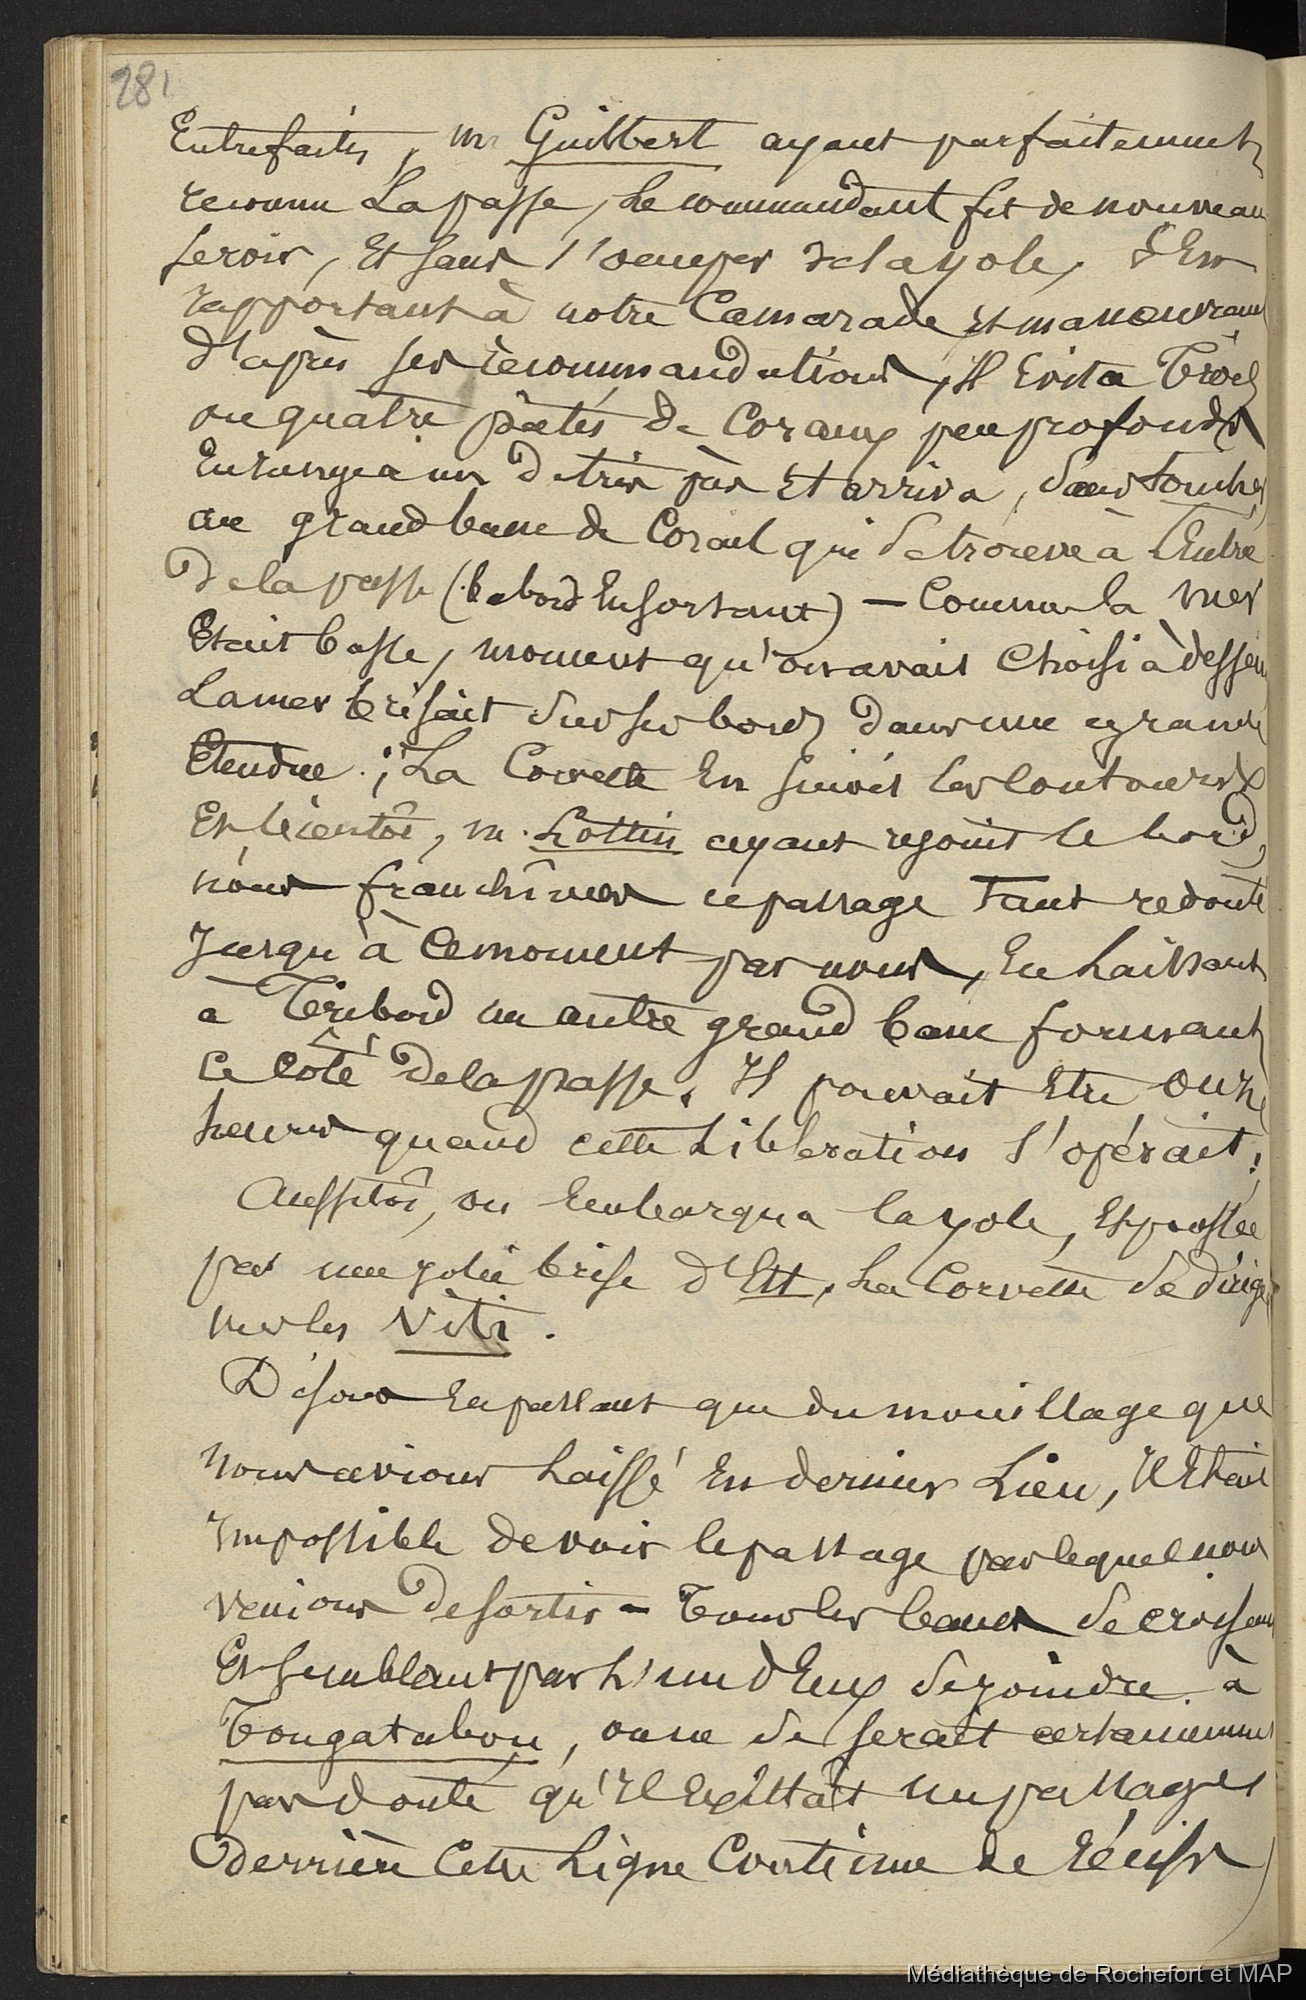 281
Entrefaites, mr Guilbert ayant parfaitement
reconnu La passe, Le commandant fit de nouveau
servir, Et sans s'occuper de la yole, S'En
rapportant à notre Camarade Et manoeuvrant
d'après ses recommandations, Il Evita Trois
ou quatre pâtés de Coraux peu profonds
En rangea un de très près Et arriva, sans toucher
au grand banc de Corail qui se trouve à L'Entrée
de la passe (babord En sortant) — Comme la mer
Etait basse, moment qu'on avait choisi à dessein
La mer brisait sur ses bords dans une grande
Etendue ; La Corvette En suivit les Contours
Et bientôt, m. Lottin ayant rejoint le bord,
nous franchîmes ce passage Tant redouté
Jusqu'à ce moment par nous, En Laissant
à Tribord un autre grand banc formant
Le Côté de la passe. Il pouvait Etre onze
heures quand cette Libération s'opérait.
Aussitôt, on Embarqua la yole, Et poussée
par une jolie brise d'Est, La Corvette se dirigea
vers les Viti.
Disons En passant que du mouillage que
nous avions Laissé En dernier Lieu, Il Etait
Impossible de voir le passage par lequel nous
venions de sortir – Tous les bancs se croisent
Et semblent par L'un d'Eux se joindre à
Tongatabou, on ne se serait certainement
pas douté qu'Il Existât un passage
derrière Cette Ligne Continue de Récifs
Médiathèque de Rochefort et MAP